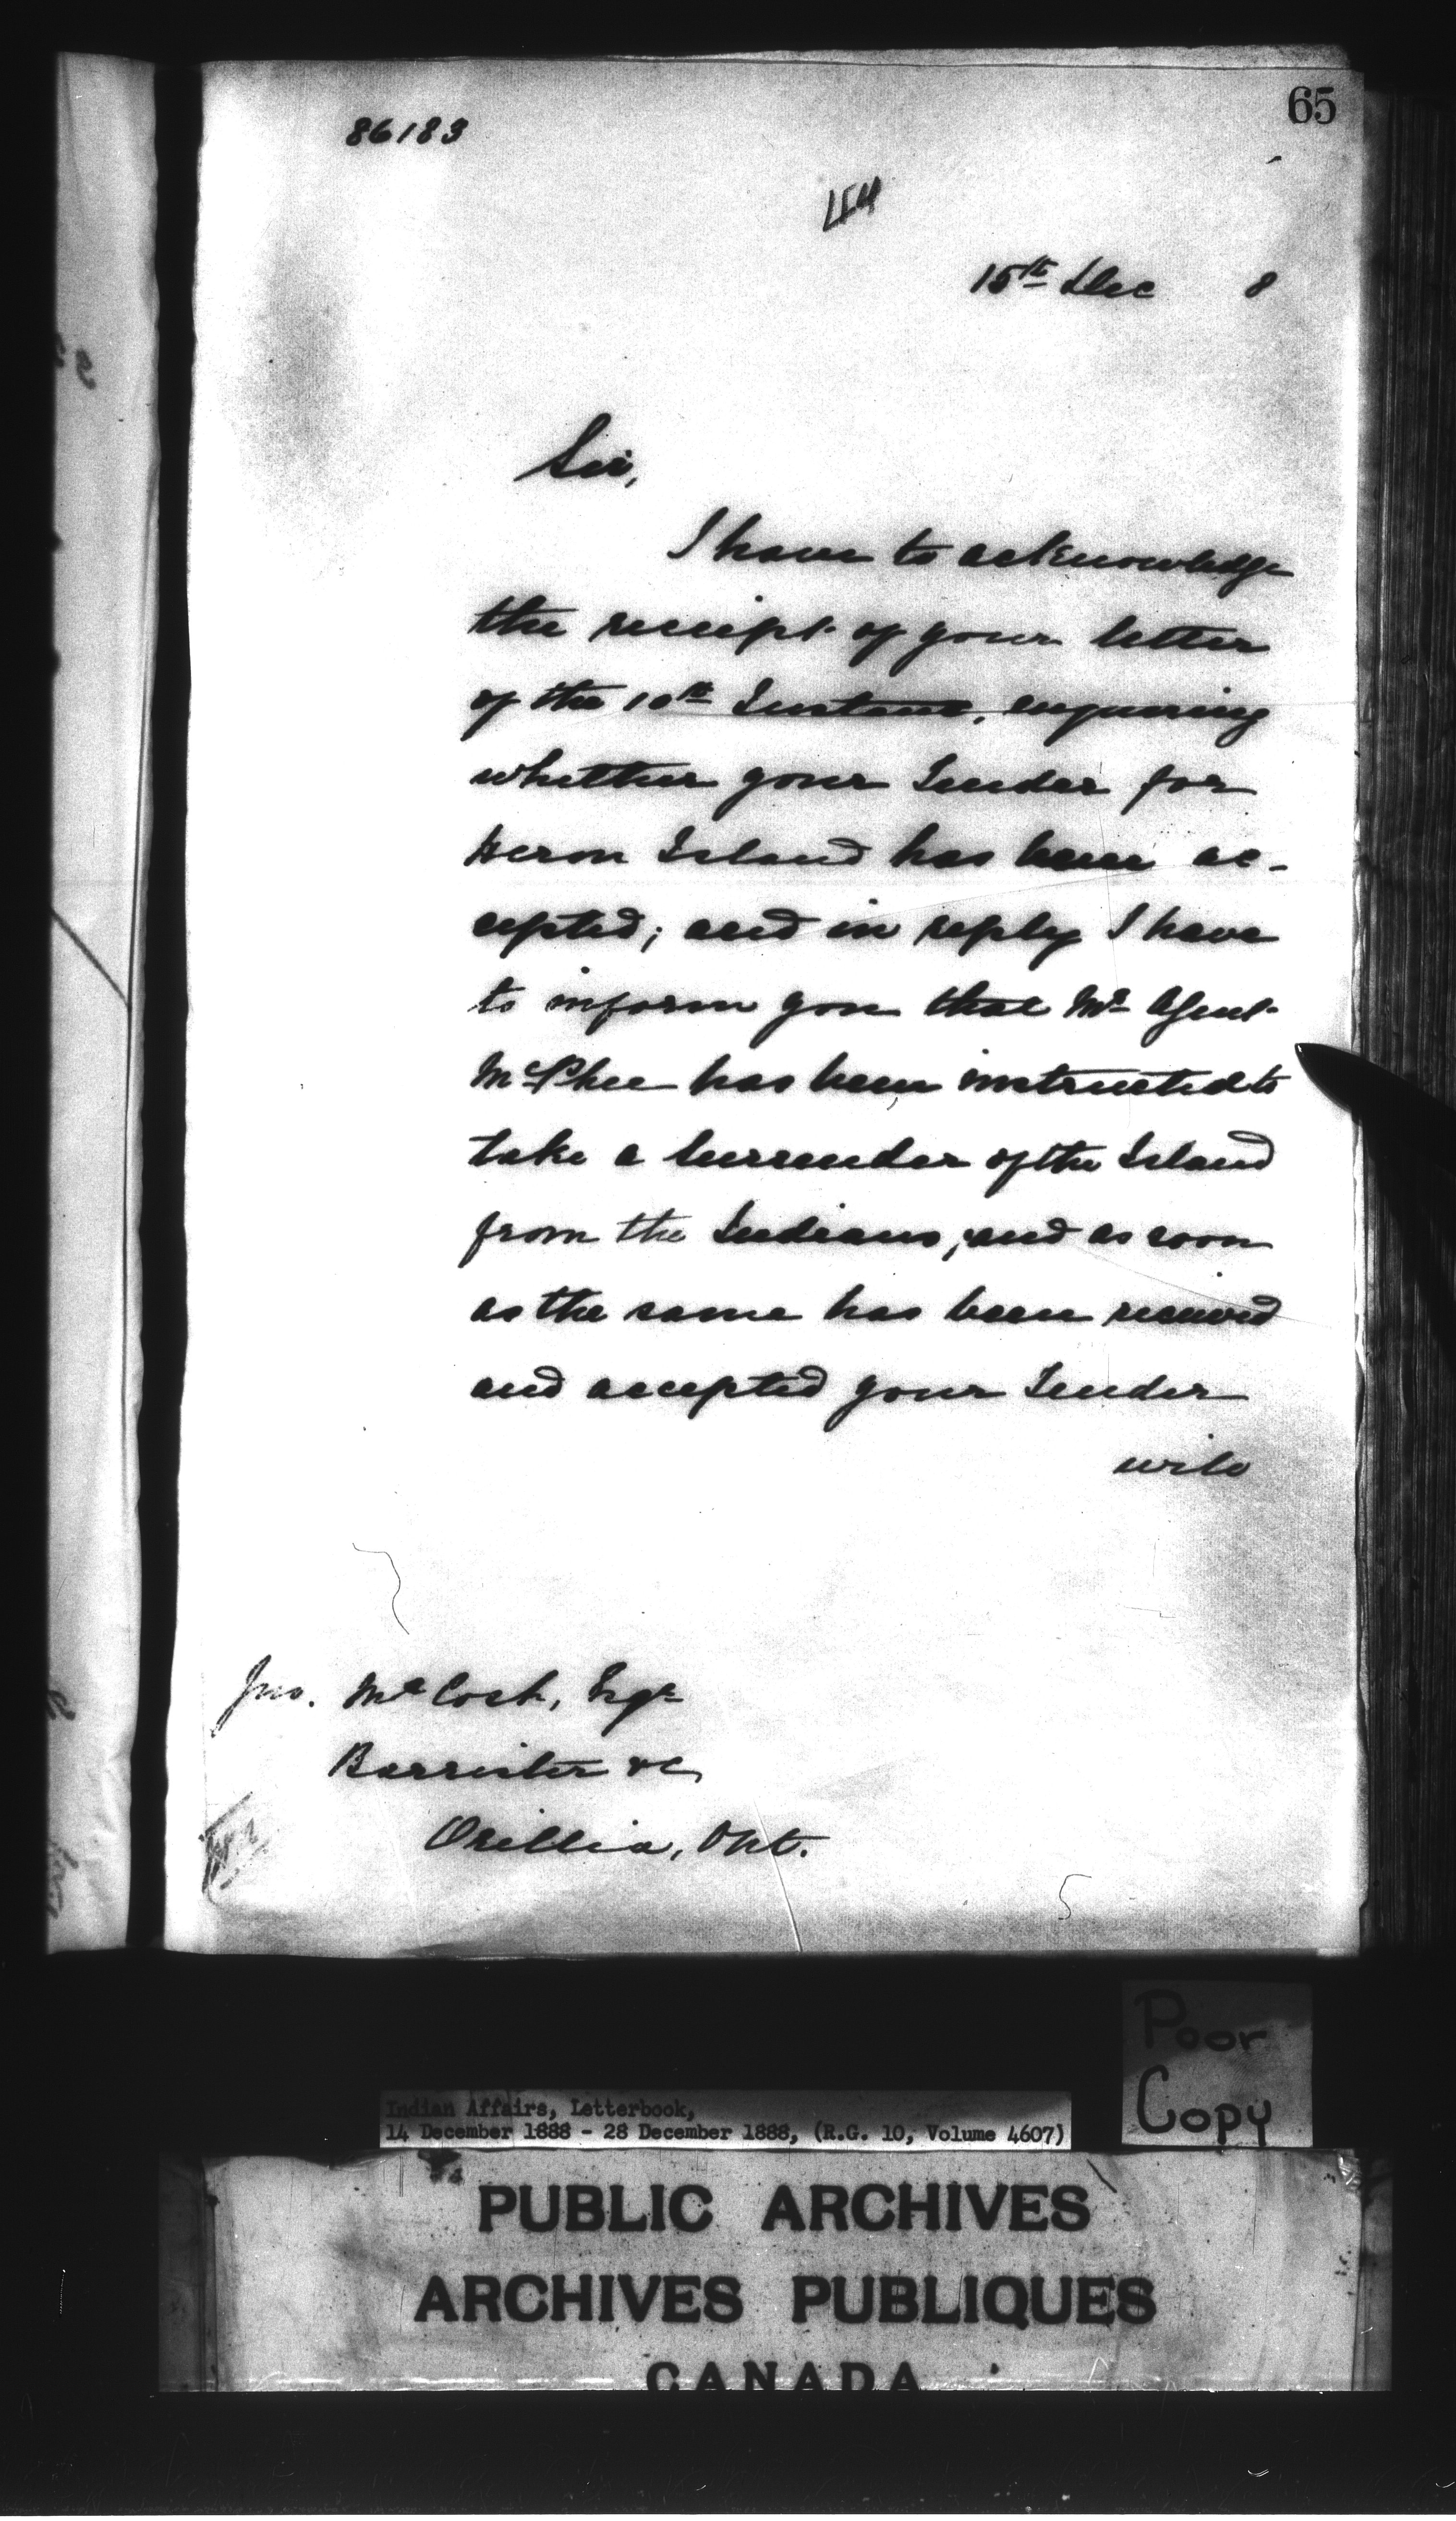 65
86183
15th Dec 8
Sir,
I have to acknowledge
the receipt of your letter
of the 10th Instant, enquiring
whether your Tender for
Heron Island has been ac-
cepted; and in reply I have
to inform you that Mr Agent
McPhee has been instructed to
take a Surrender of the Island
from the Indians, and as soon
as the same has been received
and accepted your Tender
will
Jno. McCosh, Esqr
Barrister &c,
Orillia, Ont.
Poor
Copy
Indian Affairs, Letterbook,
14 December 1888 - 28 December 1888, (R.G. 10, Volume 4607)
PUBLIC ARCHIVES
ARCHIVES PUBLIQUES
CANADA